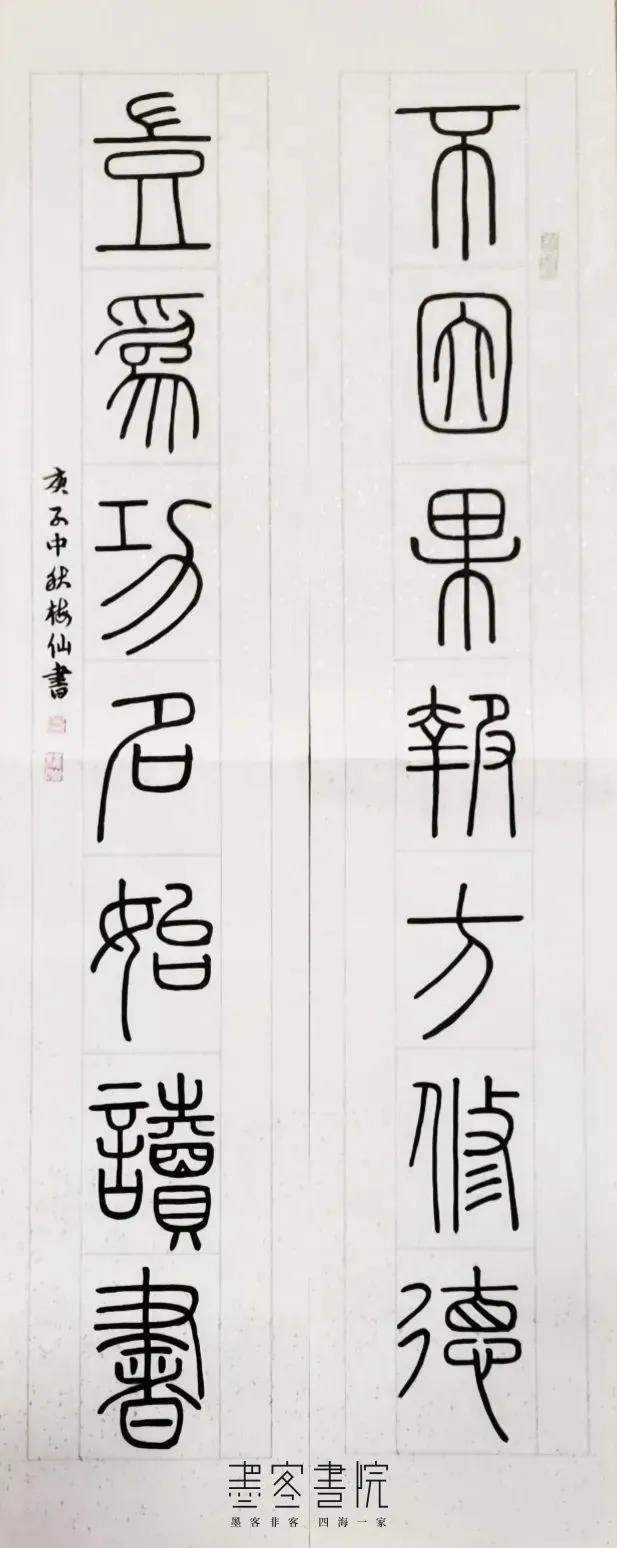 不因果報方修德
豈為功名始讀書
庚子中秋梅仙書
墨客書院
墨客非客 四海一家